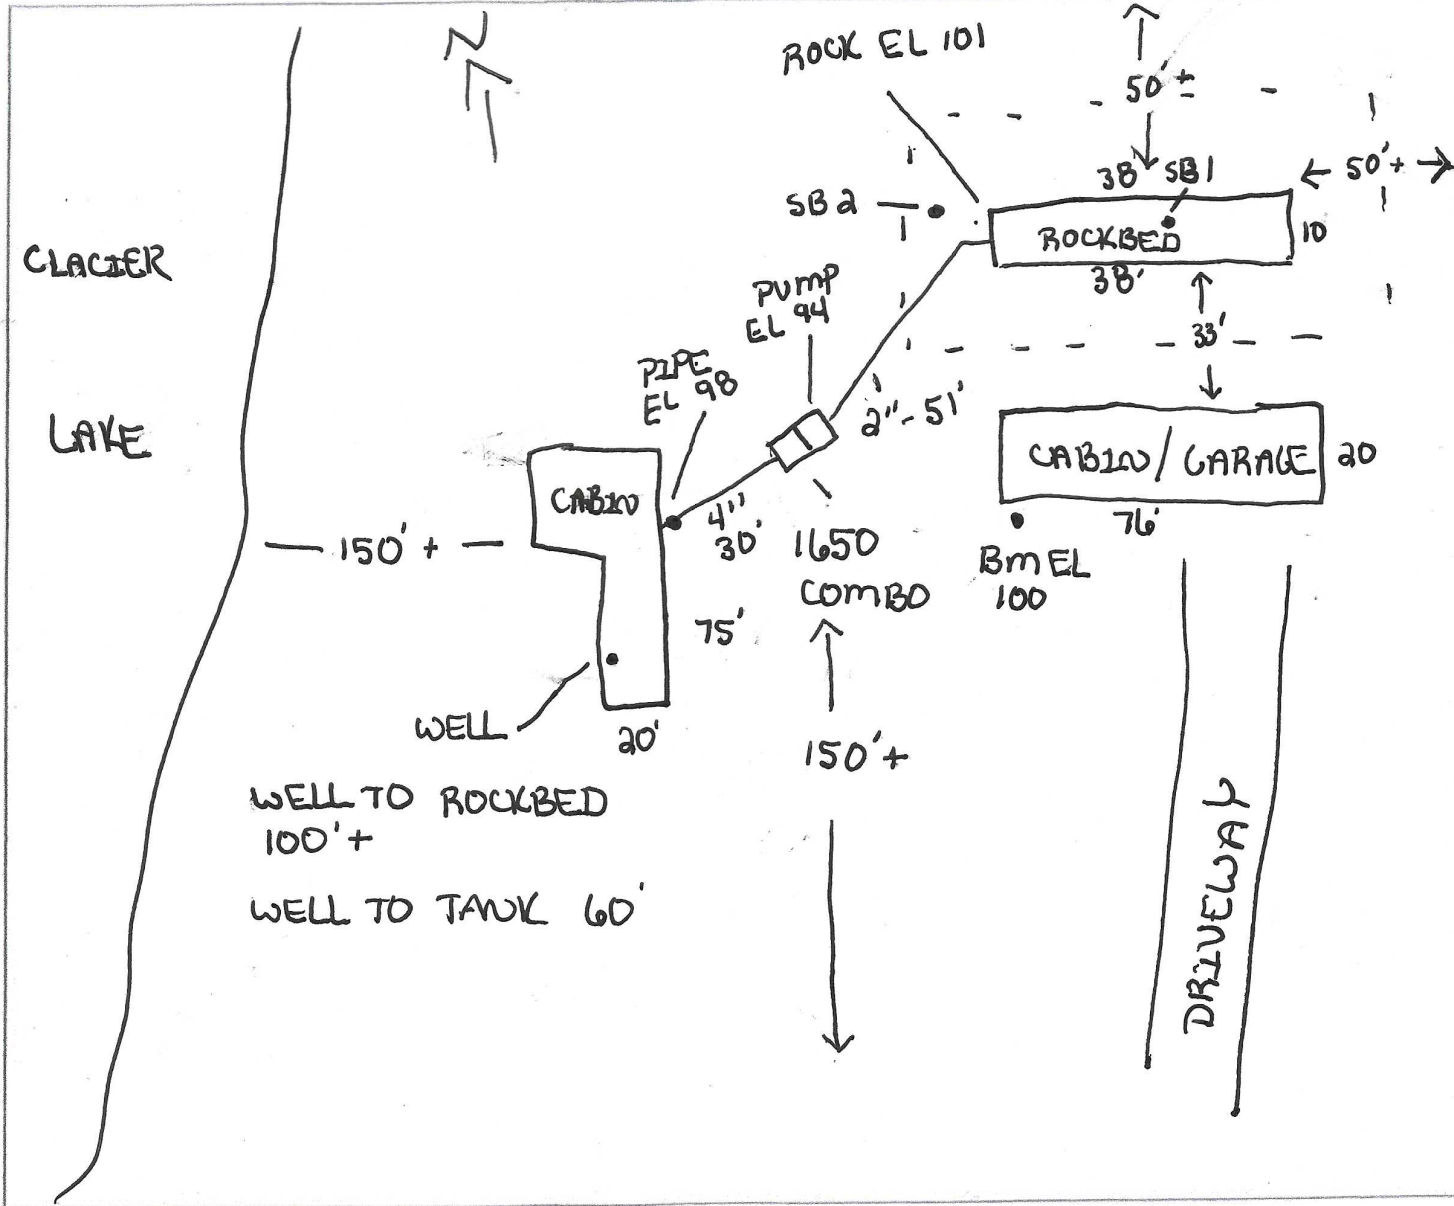 N
ROCK EL 101
50' ±
50'+
38' SB1
SB2
ROCKBED
10
38'
CLACIER
LAKE
PUMP
EL 94
33'
PIPE
EL 98
2"- 51'
CABIN/GARAGE
20
76'
CABIN
4"
30'
1650
COMBO
BM EL
100
150'+
75'
WELL
20'
150'+
WELL TO ROCKBED
100'+
WELL TO TANK 60'
DRIVEWAY